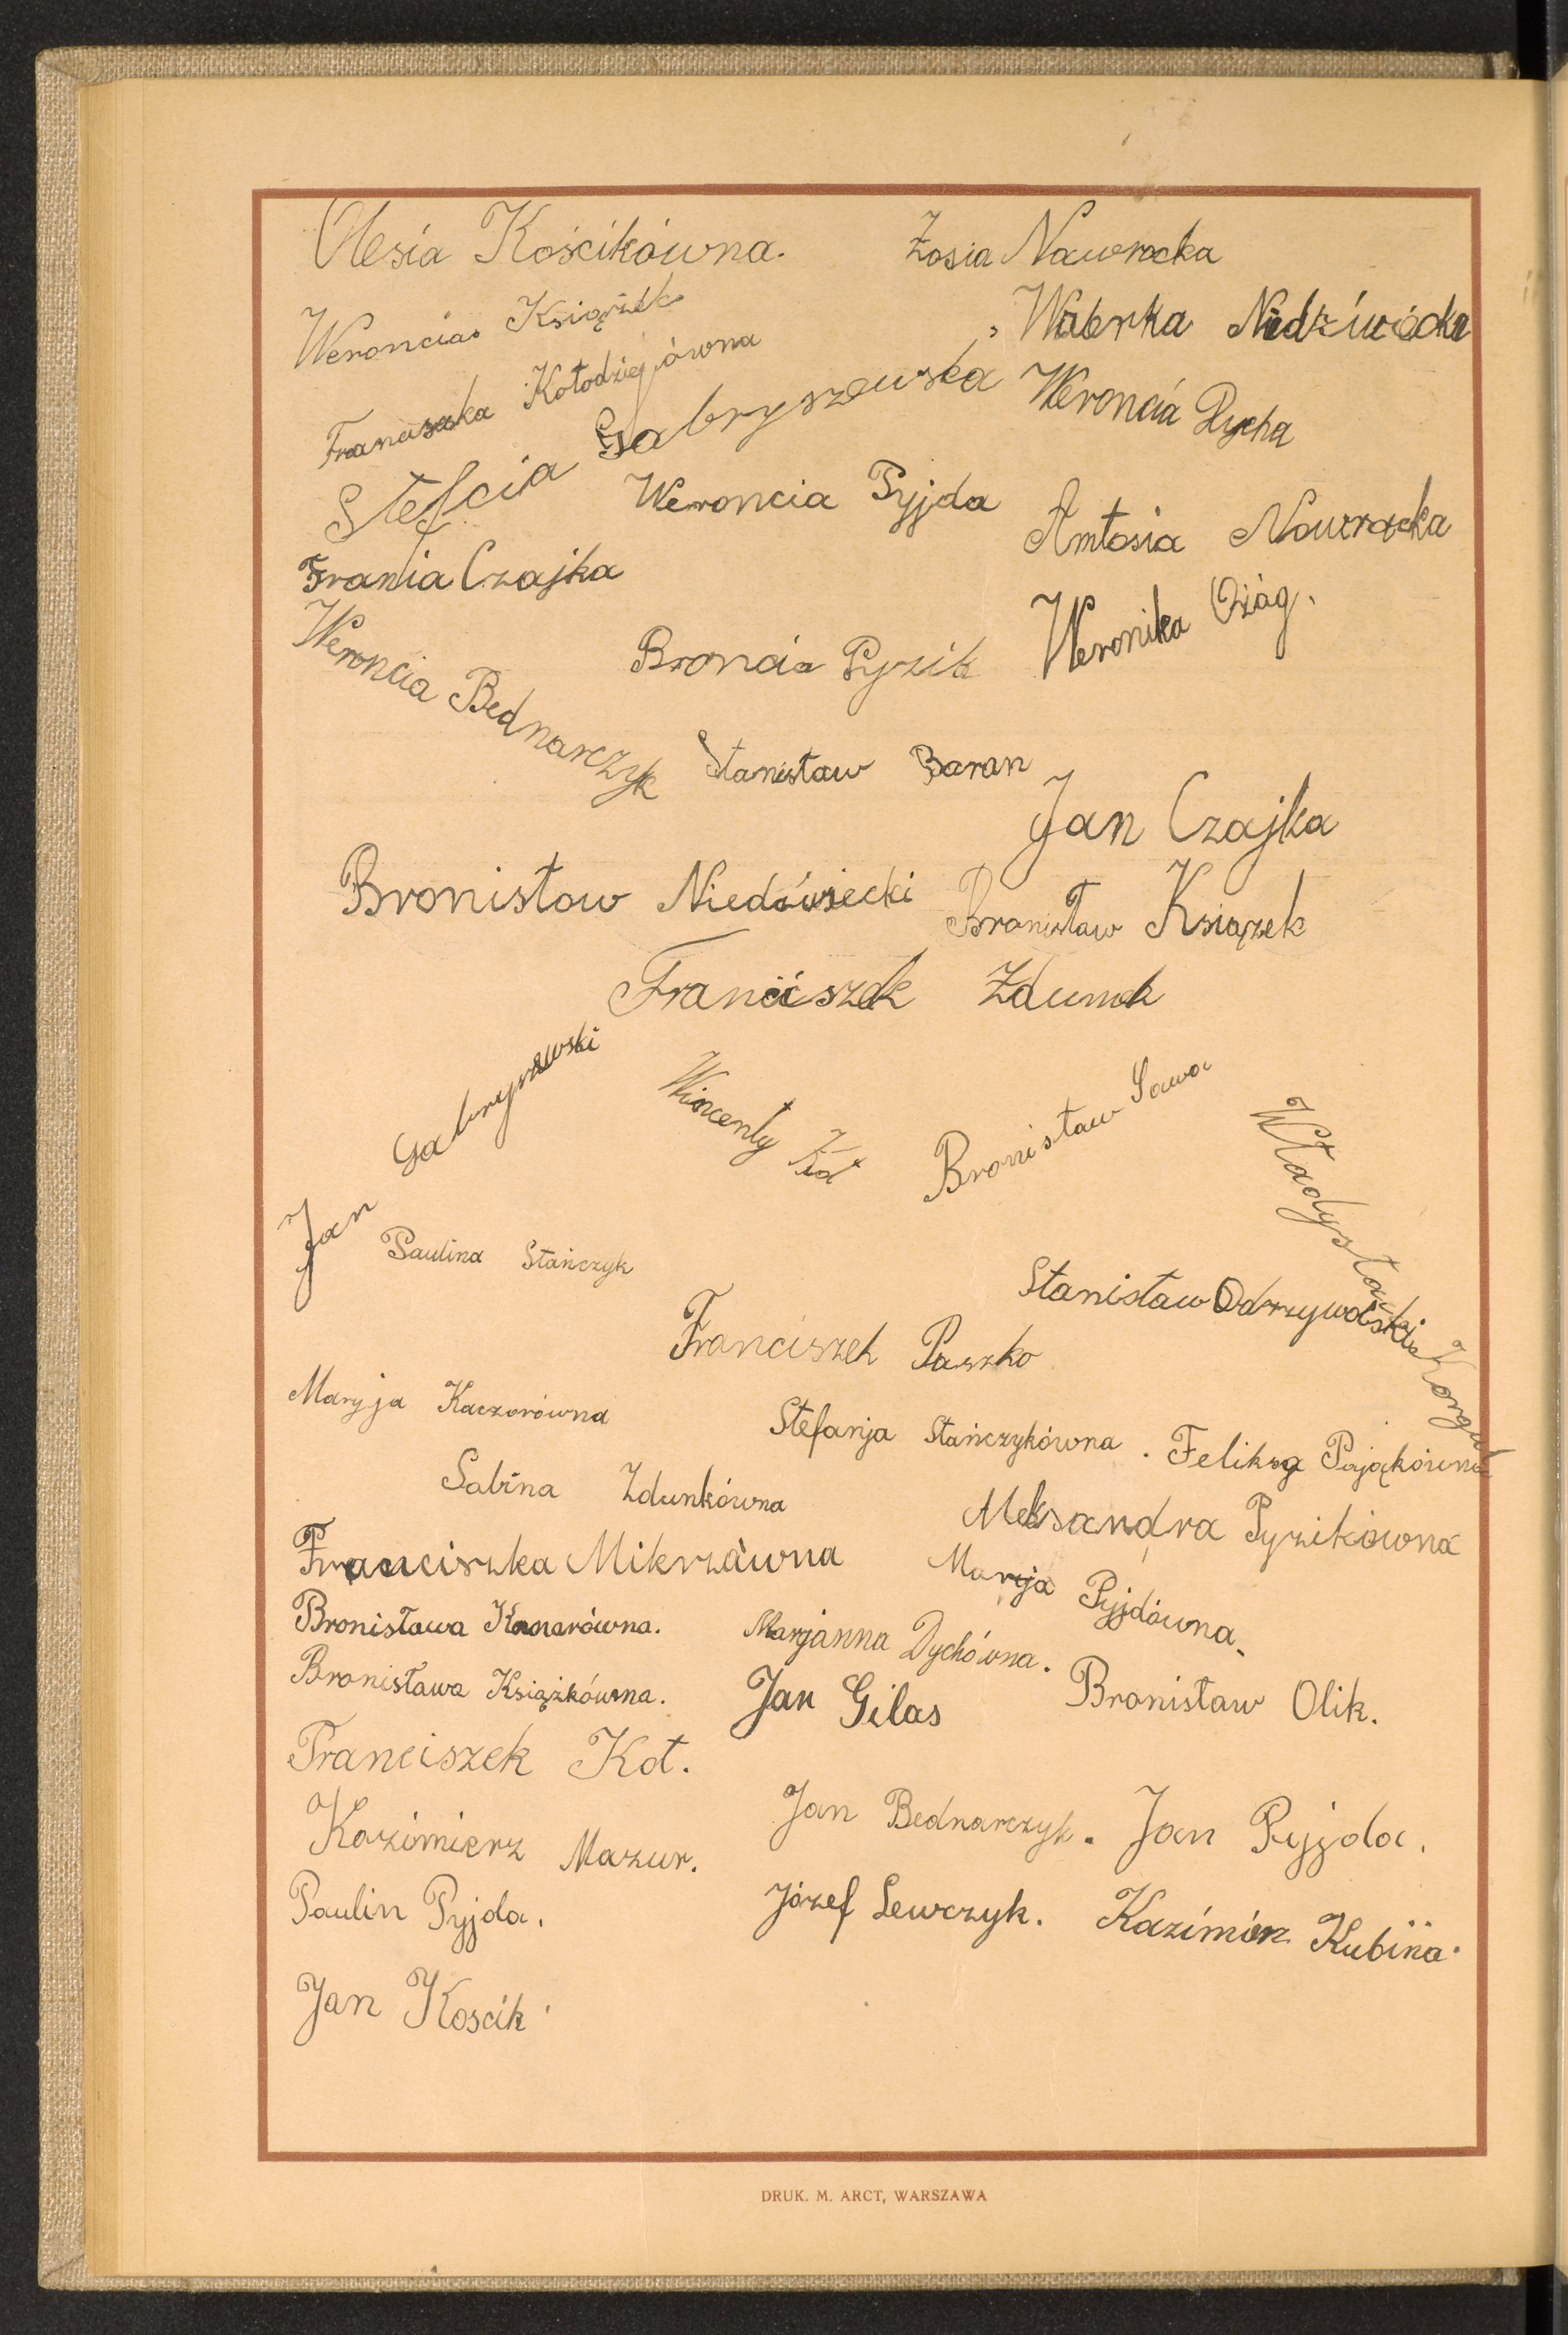 Olesia Kościkówna.
Zosia Nawrocka
Weroncia Książek
Walerka Niedźwiedzka
Franciszka Kołodziejówna
Stefcia Gabryszewska
Weroncia Dycha
Weroncia Pyjda
Antosia Nawrocka
Frania Czajka
Weronika Ożóg.
Broncia Pyzik
Weroncia Bednarczyk
Stanisław Baran
Jan Czajka
Bronisław
Bronisław Książek
Franciszek Zdunek
Jan Gabryszewski
Wincenty Kot
Bronisław Sawa
Władysław
Paulina Stańczyk
Stanisław Odrzywolski
Franciszek Paszko
Maryja Kaczorówna
Stefanja Stańczykówna.
Feliksa Pajączkówna
Sabina Zdunkówna
Aleksandra Pyzikówna
Franciszka Mikrzówna
Maryja Pyjdówna.
Bronisława
Marjanna Dychówna.
Bronisława Książkówna.
Jan Gilas
Bronisław Olik.
Franciszek Kot.
Kazimierz Mazur.
Jan Bednarczyk.
Jan Pyjda.
Paulin Pyjda.
Józef Lewczyk.
Kazimierz Kubina.
Jan Koscik
DRUK. M. ARCT, WARSZAWA